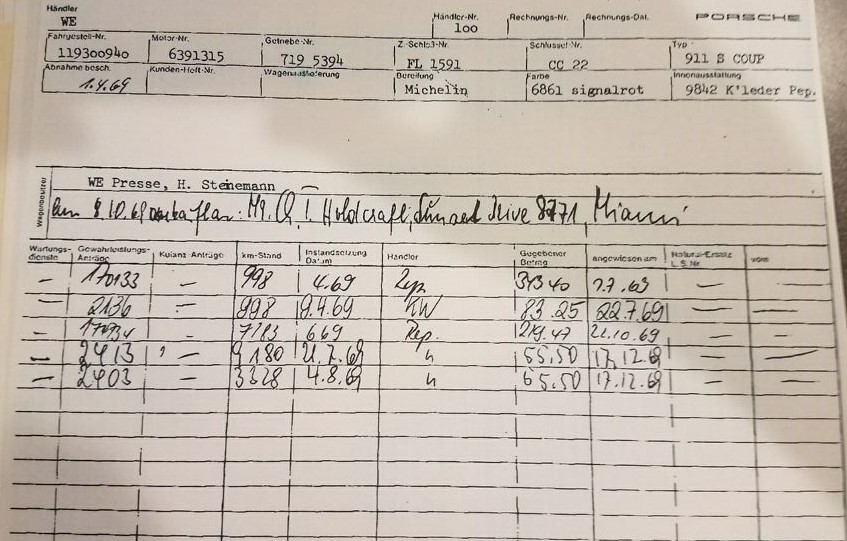 Händler
WE
Händler-Nr.
100
Rechnungs-Nr.
Rechnungs-Dat.
PORSCHE
Fahrgestell-Nr.
119300940
Motor-Nr.
6391315
Getriebe-Nr.
719 5394
Z.-Schloß-Nr.
FL 1591
Schlüssel-Nr.
CC 22
Typ
911 S COUP
Abnahme besch.
1.4.69
Kunden-Heft-Nr.
Wagenauslieferung
Bereifung
Michelin
Farbe
6861 signalrot
Innenausstattung
9842 K'leder Pep.
Wagenbesitzer
WE Presse, H. Steinemann
8.10.69 Mr. Q. I. Holdcraft, Sunset Drive 8771, Miami
Wartungs-dienste Gewährleistungs-Anträge Kulanz-Anträge km-Stand Instandsetzung Datum Händler Gegebener Betrag angewiesen am Natural-Ersatz L.S.Nr. vom
— 170133 — 998 4.69 Rep. 343 40 7.7.69 —
— 2136 — 998 9.4.69 KW 83.25 22.7.69 — —
— — 7183 669 Rep. 219.47 21.10.69 —
— 2413 — 9180 21.7.69 " 55.50 17.12.69 — —
— 2403 — 3328 4.8.69 " 65.50 17.12.69 — —